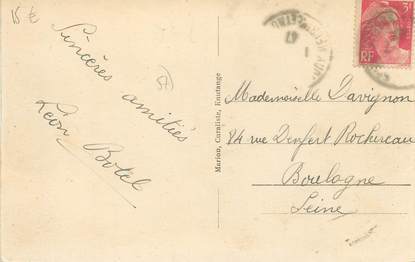 Sincères amitiés
Léon Botel
Marion, Cafetiste, Knutange
Mademoiselle Davignon
84 rue Denfert Rochereau
Boulogne
Seine
3F
RF
47